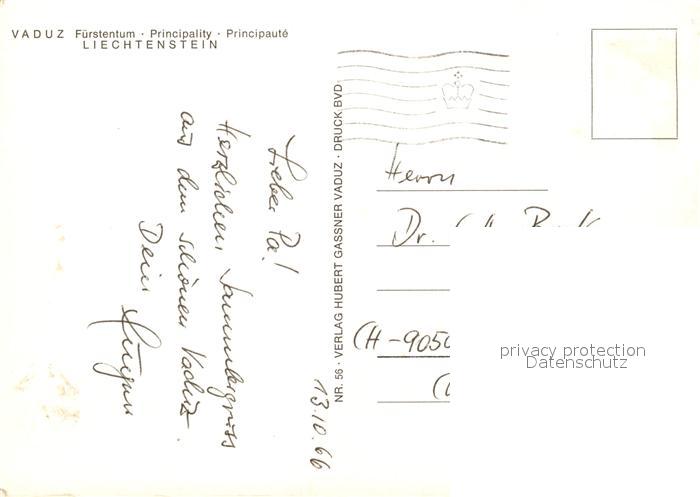 VADUZ Fürstentum · Principality · Principauté
LIECHTENSTEIN
13.10.66
Lieber Pa!
Herzlichen Sammlergruss
aus dem schönen Vaduz.
Dein
NR. 56 · VERLAG HUBERT GASSNER VADUZ · DRUCK BVD
Herrn
Dr.
CH-9050
privacy protection
Datenschutz